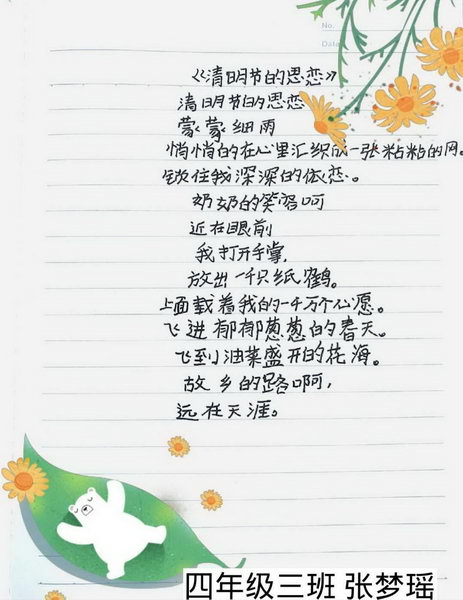 No.
Date
《清明节的思恋》
清明节的思恋
蒙蒙细雨
悄悄的在心里汇织成一张粘粘的网。
锁住我深深的依恋。
奶奶的笑容呵
近在眼前
我打开手掌,
放出一千只纸鹤。
上面载着我的一千万个心愿。
飞进郁郁葱葱的春天。
飞到油菜盛开的花海。
故乡的路啊,
远在天涯。
四年级三班 张梦瑶